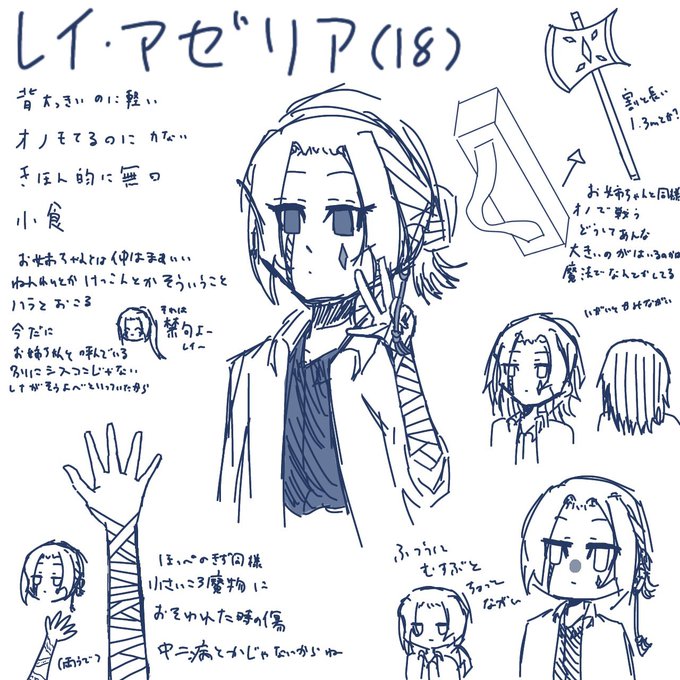 レイ・アゼリア(18)
背大っきいのに軽い
オノモてるのに力ない
きほん的に無口
小食
お姉ちゃんとは仲はまあいい
れんあいとか けっこんとか そういうこと
ハラと おこる
今だに
お姉ちゃんと呼んでいる
別にシスコンじゃない
レナがそうよべといっていたから
それは
禁句よー
レイー
割と長い
1.3mとか?
お姉ちゃんと同様
オノで戦う
どうしてあんな
大きいのがはいるのかは
魔法でなんとかしてる
いがいとかみながい
ほっぺのきず同様
小さいころ魔物に
おそわれた時の傷
中二病とかじゃないからね
(両うで)
ふつうに
むすぶと
ちょって
ながい